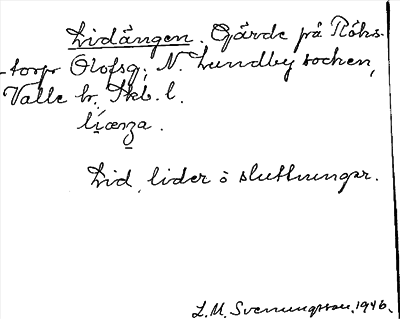 Lidängen. Gärde på Röks-
torp Olofsg; N. Lundby socken,
Valle hr. Skb. l.
li̠æŋa.
Lid, lider = sluttningar.
L. M. Svenungsson, 1946.